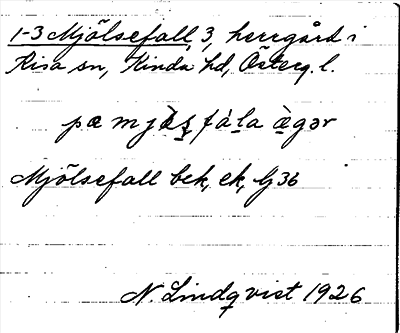 1-3 Mjölsefall, 3, herrgård i
Kisa sn, Kinda hd, Österg. l.
Mjölsefall bek, ek, Lj 36
N. Lindqvist 1926